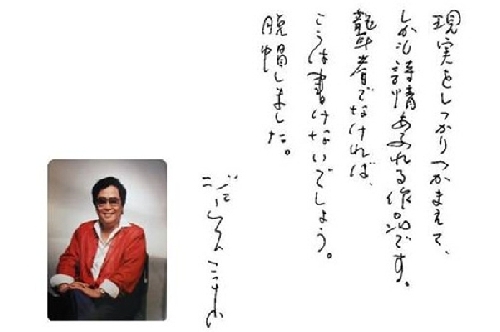 現実をしっかりつかまえて、
しかも詩情あふれる作品です。
聾者でなければ、
こうは書けないでしょう。
脱帽しました。
ジェームス三木